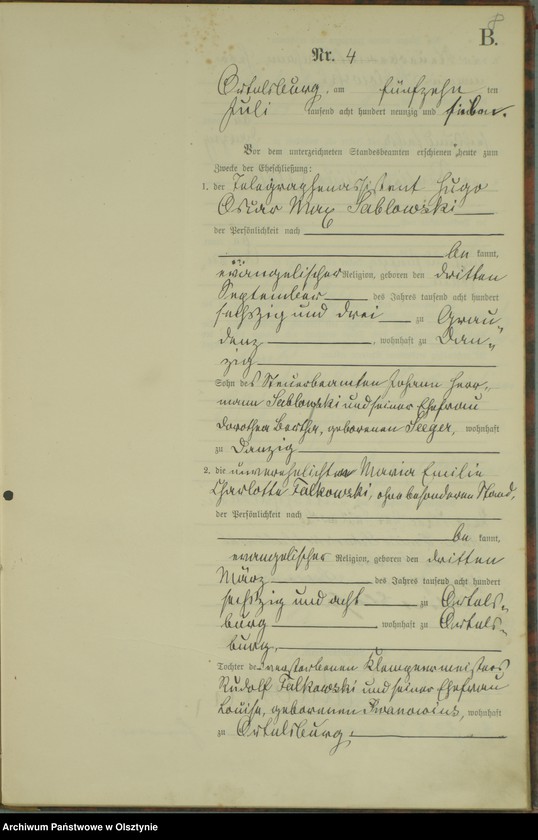 8
B.
Nr. 4
Ortelsburg, am fünfzehn ten
Juli tausend acht hundert neunzig und sieben.
Vor dem unterzeichneten Standesbeamten erschienen heute zum
Zwecke der Eheschließung:
1. der Telegraphenassistent Hugo
Oscar Max Sablowski
der Persönlichkeit nach
be kannt,
evangelischer Religion, geboren den dritten
September des Jahres tausend acht hundert
sechszig und drei zu Grau„
denz, wohnhaft zu Dan„
zig
Sohn des Steuerbeamten Johann Herr„
mann Sablowski und seiner Ehefrau
Dorothea Bertha, geborenen Seeger, wohnhaft
zu Danzig
2. die unverehelichte Maria Emilie
Charlotte Falkowski, ohne besonderen Stand,
der Persönlichkeit nach
be kannt,
evangelischer Religion, geboren den dritten
März des Jahres tausend acht hundert
sechszig und acht zu Ortels„
burg wohnhaft zu Ortels„
burg,
Tochter des verstorbenen Klempnermeisters
Rudolf Falkowski und seiner Ehefrau
Louise, geborenen wohnhaft
zu Ortelsburg.
Archiwum Państwowe w Olsztynie